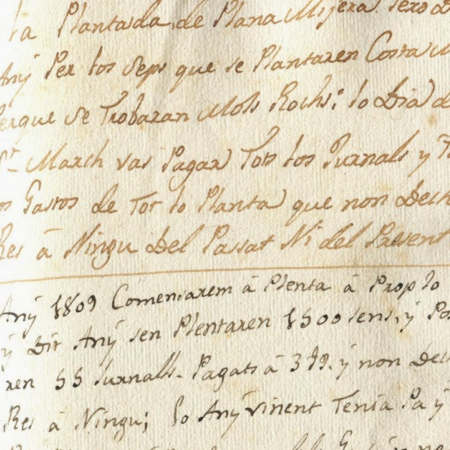 la Plantada de Plana Mijera sero
Any Per los Seps que se Plantaren Costa
perque se Trobaran Mols Rochs: lo Dia de
St. March vas Pagar Tots los Jurnals y
Gastos de Tot lo Planta que non
Res â Ningu Del Passat Ni del Present
Any 1809 Comensarem â Plenta â Prop lo
y Dit Any sen Plentaren 1500 sens, y
55 Jurnalls. Pagats â y non
Res â Ningu; lo Any vinent Tenia Pa y